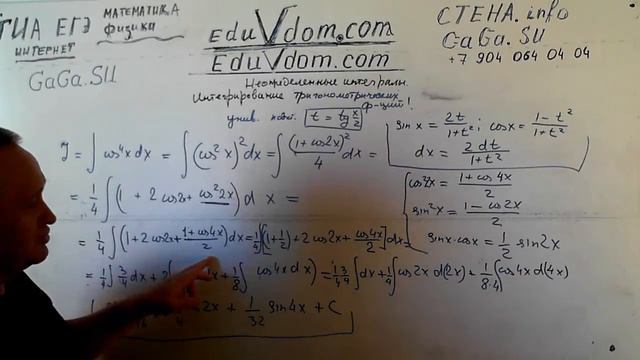 ГИА ЕГЭ МАТЕМАТИКА
физика
ИНТЕРНЕТ
GaGa.SU
EduVdom.com
EduVdom.com
СТЕНА.info
GaGa.SU
+7 904 064 04 04
Неопределенные интегралы.
Интегрирование тригонометрических
ф-ций!
унив. t = tg x/2
sin x = 2t/(1+t²); cos x = (1-t²)/(1+t²)
dx = 2dt/(1+t²)
J = ∫ cos⁴x dx = ∫(cos²x)² dx = ∫ (1+cos2x)²/4 dx =
= 1/4 ∫(1 + 2cos2x + cos²2x) dx =
cos²2x = (1+cos4x)/2
sin²x = (1-cos2x)/2
sinx·cosx = 1/2 sin2x
= 1/4 ∫(1+2cos2x+(1+cos4x)/2)dx = 1/4 ∫[(1+1/2)+2cos2x+cos4x/2]dx =
cos4x dx) = ∫dx + 1/4 ∫cos2x d(2x) + 1/(8·4) ∫cos4x d(4x)
2x + 1/32 sin4x + C